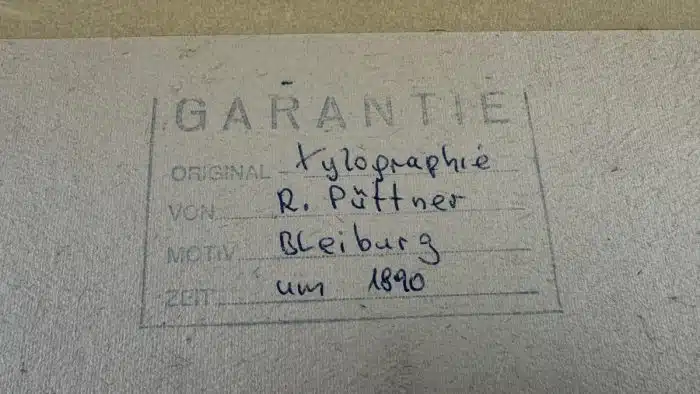 GARANTIE
ORIGINAL Xylographie
VON R. Püttner
MOTIV Bleiburg
ZEIT um 1890